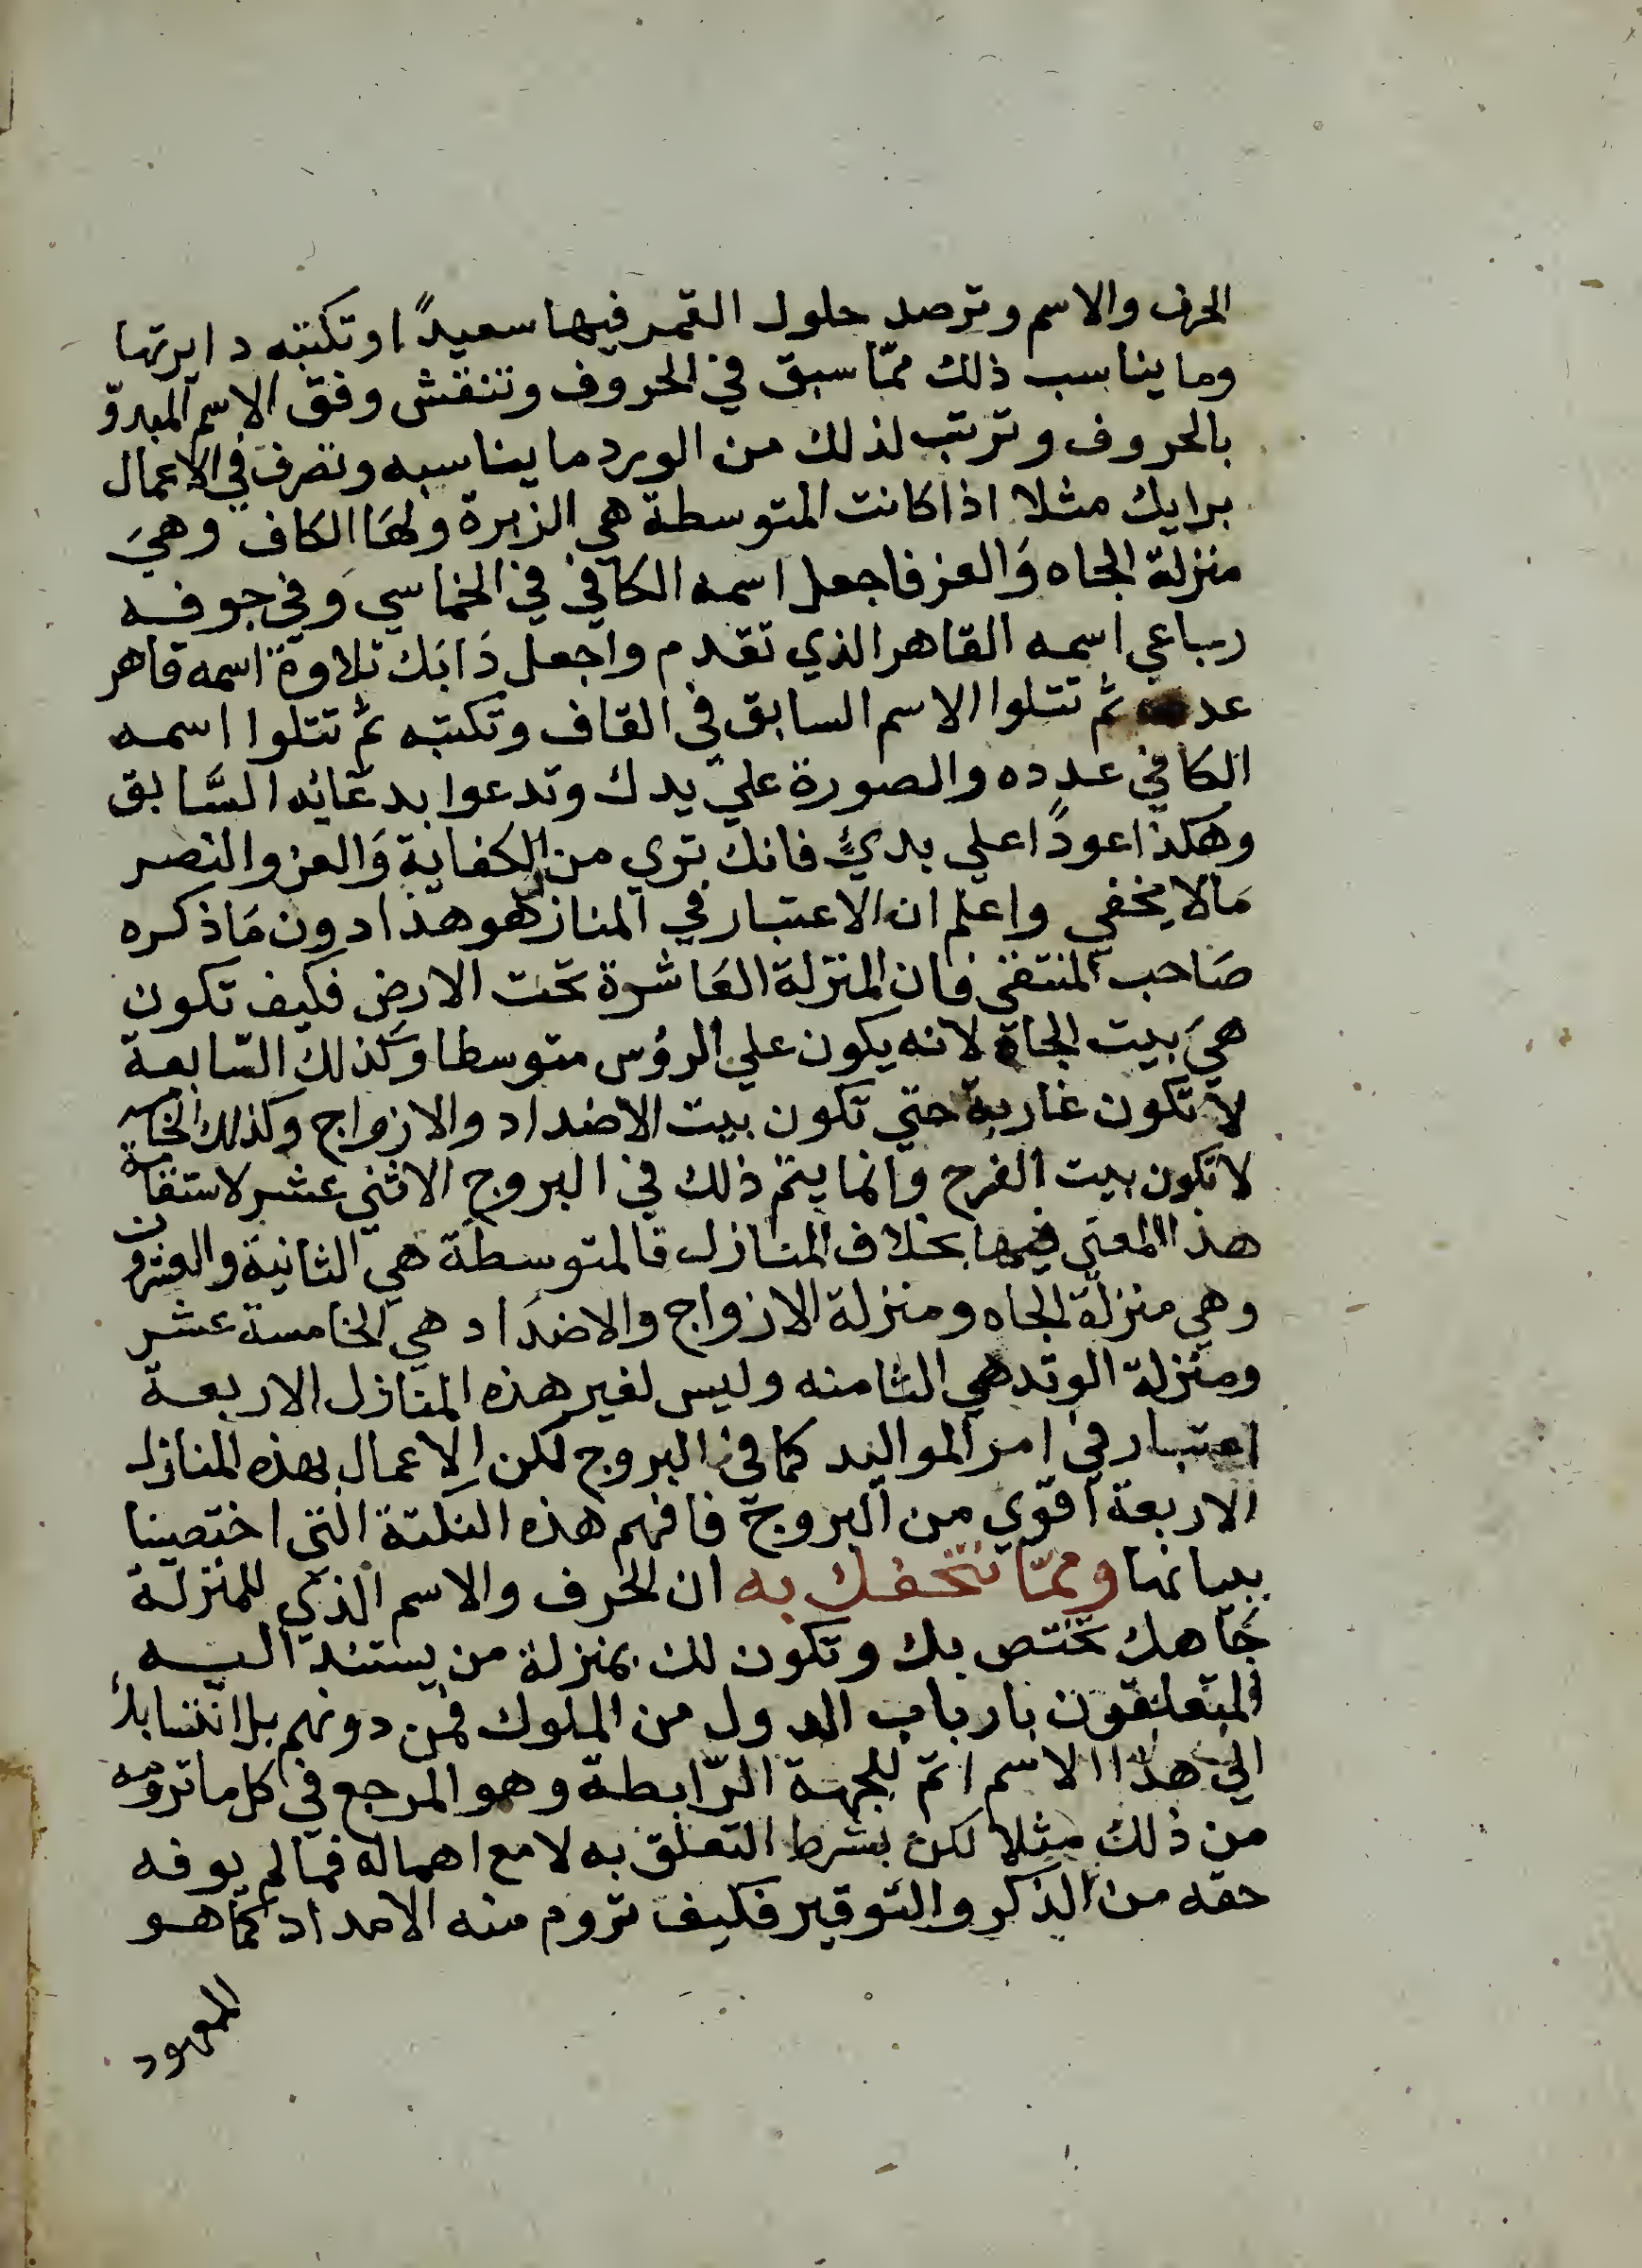 الحرف والاسم وترصد حلول القمر فيها سعيدًا وتكتبه دايرتها
وما يناسب ذلك ممّا سبق في الحروف وتنقش وفق الاسم المبدوّ
بالحروف وترتب لذلك من الورد ما يناسبه وتصرف في الاعمال
برايك مثلا اذا كانت المتوسطة هي الزبرة ولهَا الكاف وهيَ
منزلة الجاه وَالعز فاجعل اسمه الكافي في الخماسي وَفي جوفه
رباعي اسمه القاهر الذي تقدم واجعل دَابَك تلاوة اسمه قاهر
ثم تتلوا الاسم السابق في القاف وتكتبه ثم تتلوا اسمه
الكافي عدده والصورة علي يدك وتدعوا بدعَائه السَّابق
وهكذا عودًا علي بدئٍ فانك تري من الكفاية وَالعز والنصر
مَا لا يخفي واعلم ان الاعتبار في المنازل هو هذا دون مَا ذكره
صَاحب المنتقي فان المنزلة العَاشرة تحت الارض فكيف تكون
هيَ بيت الجاه لانه يكون علي الرؤس متوسطا وَكذلك السّابعة
لا تكون غاربة حتي تكون بيت الاضداد والازواج وكذلك الخامسة
لا تكون بيت الفرح وانما يتم ذلك في البروج الاثني عشر لاستقامة
هذا المعني فيها بخلاف المنازل فالمتوسطة هي الثانية والعشرون
وهي منزلة الجاه ومنزلة الازواج والاضدَاد هي الخامسة عشر
ومنزلة الوتد هي الثامنه وليس لغير هذه المنازل الاربعة
اعتبار في امر المواليد كما في البروج لكن الاعمال بهذه المنازل
الاربعة اقوي من البروج فافهم هذه النكتة التي اختصينا
ببيانها وممّا نتحفك به ان الحرف والاسم الذي للمنزلة
جَاهك تختص بك وتكون لك بمنزلة من يستند اليه
المتعلقون بارباب الدول من الملوك فمن دونهم بل انتسابك
الي هذا الاسم اتمّ للجهة الرّابطة وهو المرجع في كل ما ترومه
من ذلك مثلا لكن بشرط التعلّق به لا مع اهماله فما لم يوفه
حقه من الذكر والتوقير فكيف تروم منه الامداد كمَا هو
المعهود